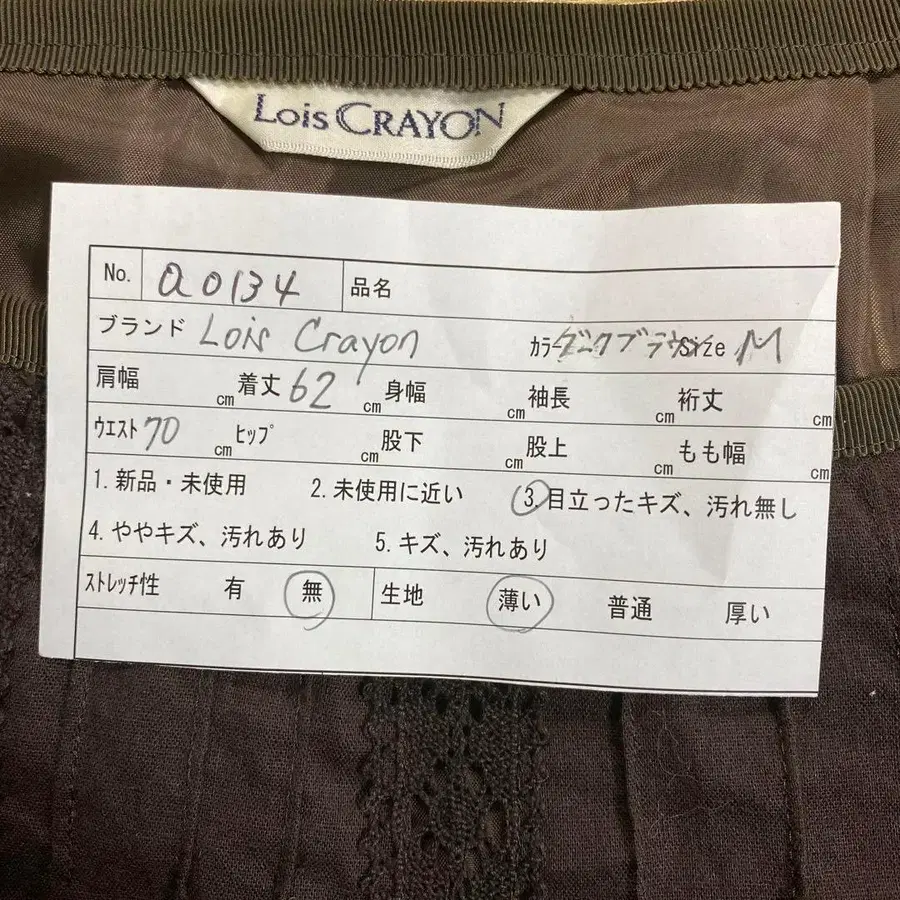 Lois CRAYON
No. a0134 品名
ブランド Lois Crayon カラー ダークブラウン Size M
肩幅 cm 着丈 62 cm 身幅 cm 袖長 cm 裄丈 cm
ウエスト 70 cm ヒップ cm 股下 cm 股上 cm もも幅 cm
1. 新品・未使用 2. 未使用に近い 3. 目立ったキズ、汚れ無し
4. ややキズ、汚れあり 5. キズ、汚れあり
ストレッチ性 有 無 生地 薄い 普通 厚い